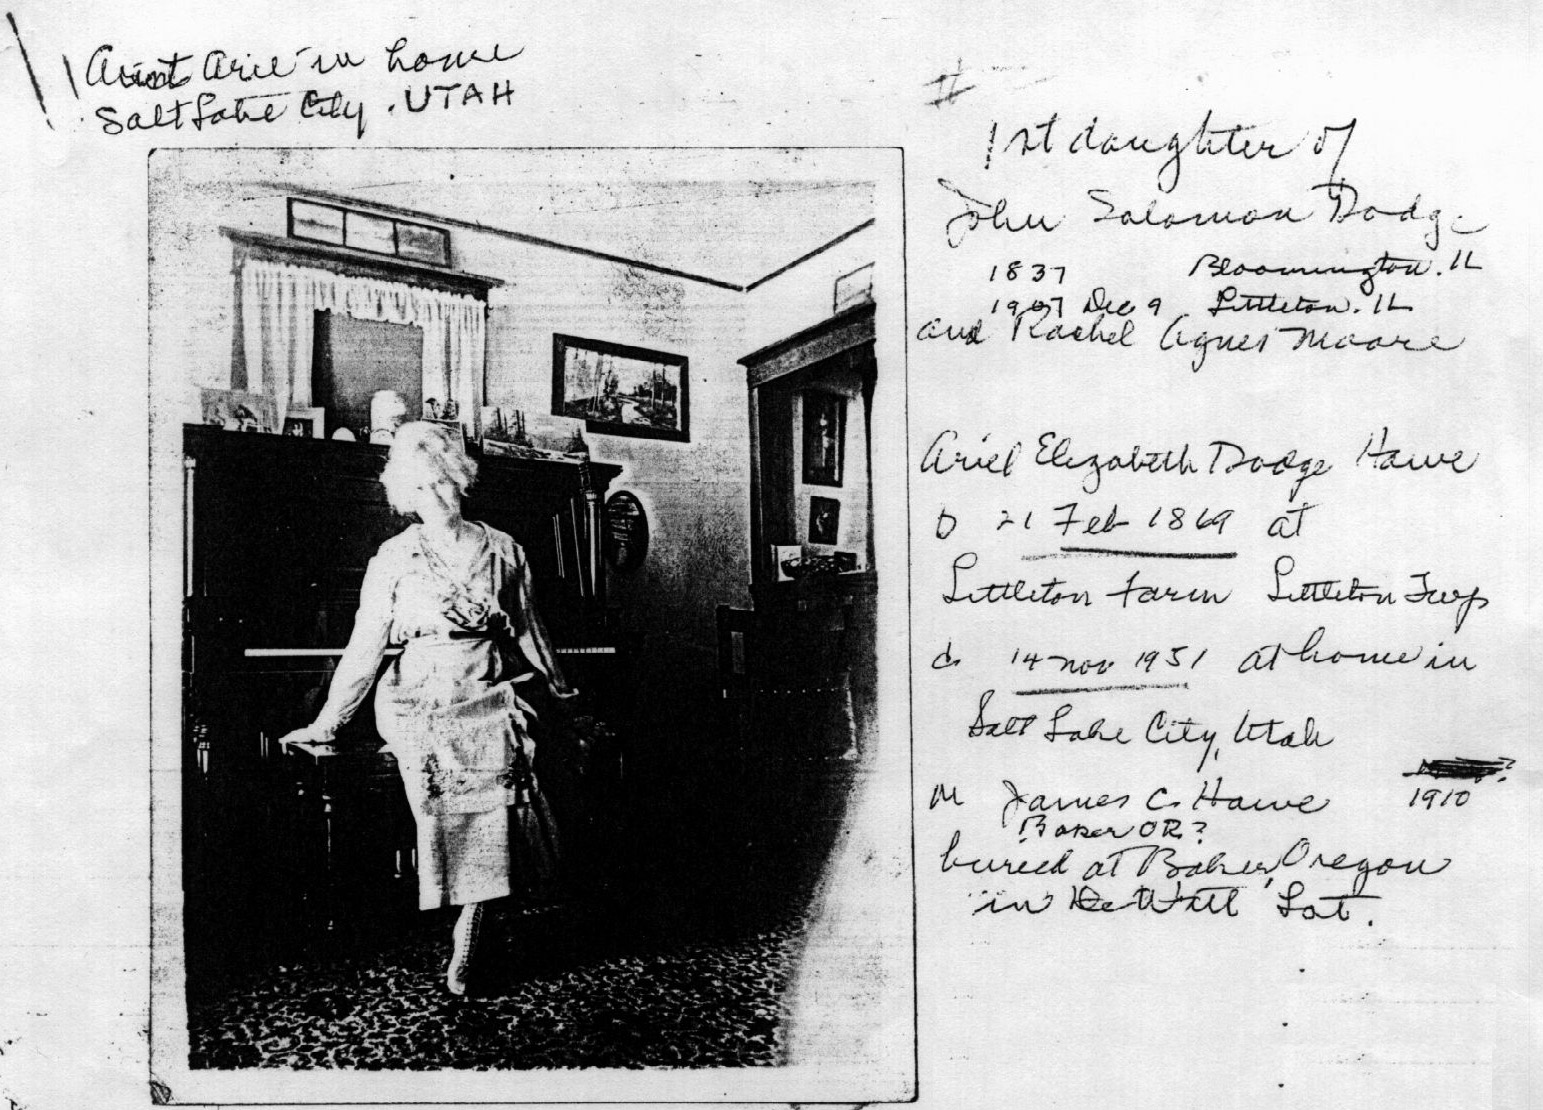 Aunt Arie in home
Salt Lake City, UTAH
1st daughter of
John Salomon Dodge
1837 Bloomington, IL
1907 Dec 9 Littleton, IL
and Rachel Agnes Moore
Ariel Elizabeth Dodge Hawe
b 21 Feb 1869 at
Littleton Farm Littleton Twp
d. 14 Nov 1951 at home in
Salt Lake City, Utah
M James C. Hawe 1910
Baker OR?
buried at Baker, Oregon
in DeWitt Lot.